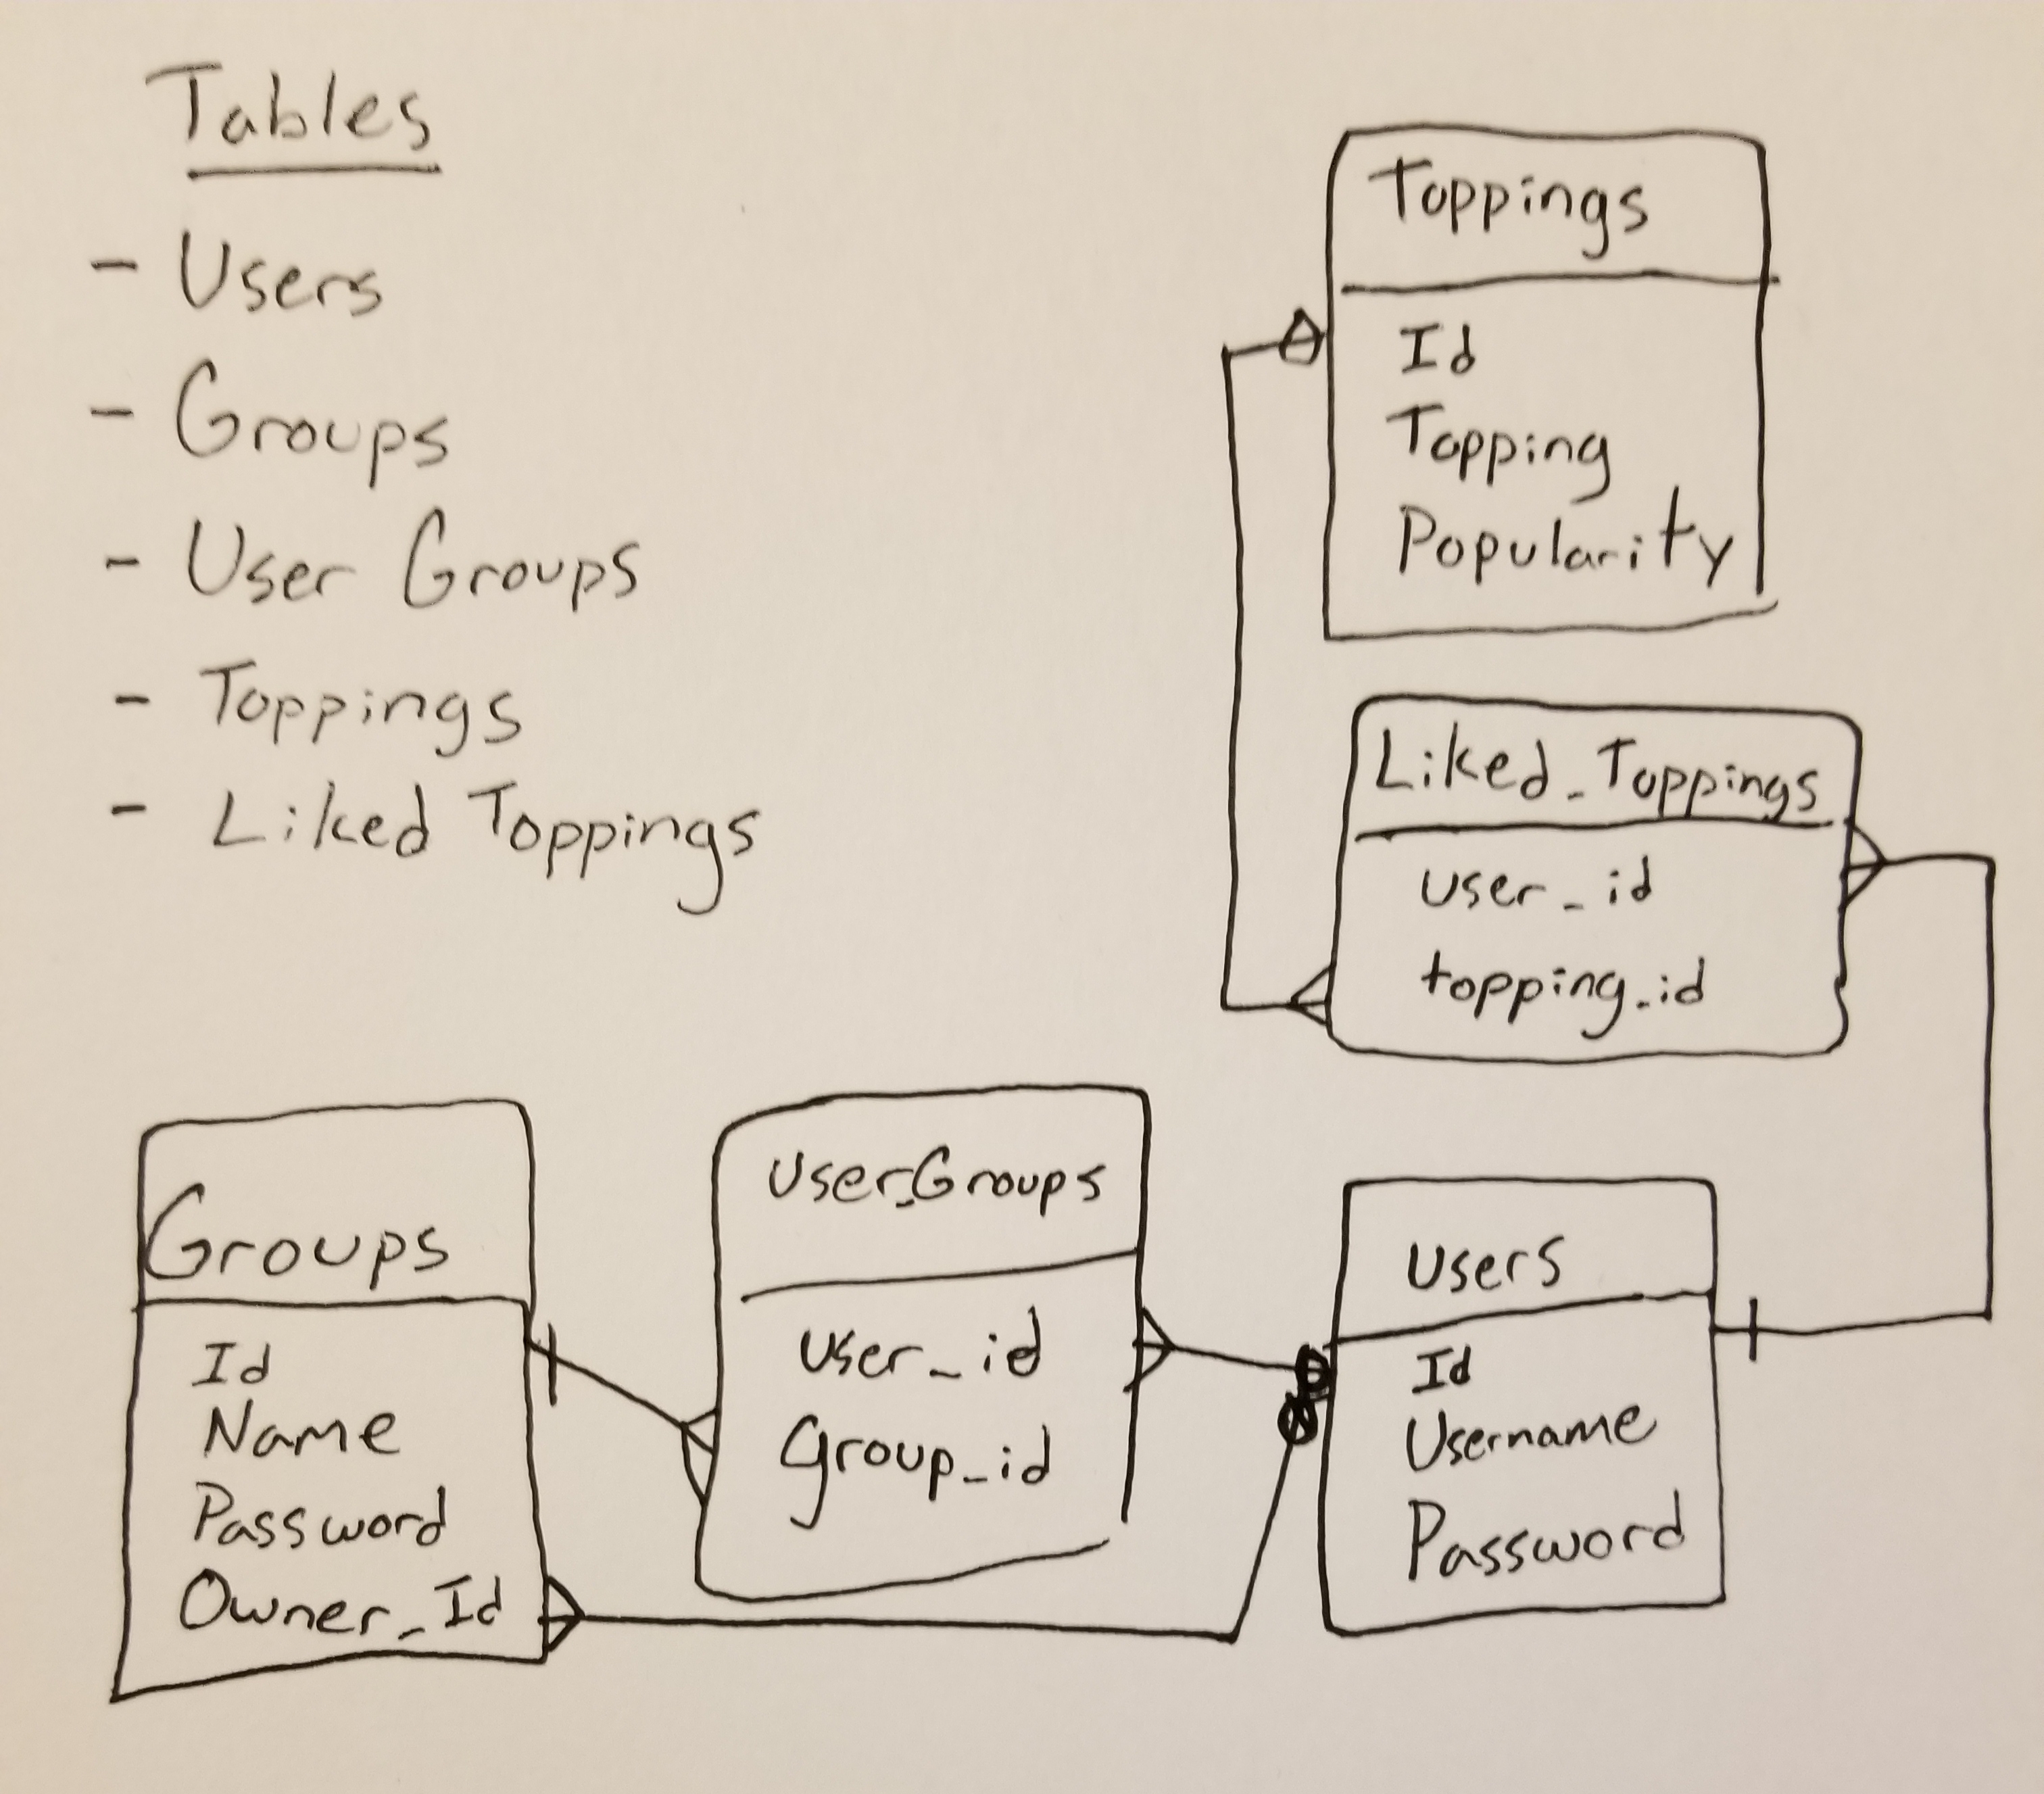 Tables
- Users
- Groups
- User Groups
- Toppings
- Liked Toppings
Toppings
Id
Topping
Popularity
Liked_Toppings
user_id
topping_id
Groups
Id
Name
Password
Owner_Id
User_Groups
user_id
Group_id
Users
Id
Username
Password